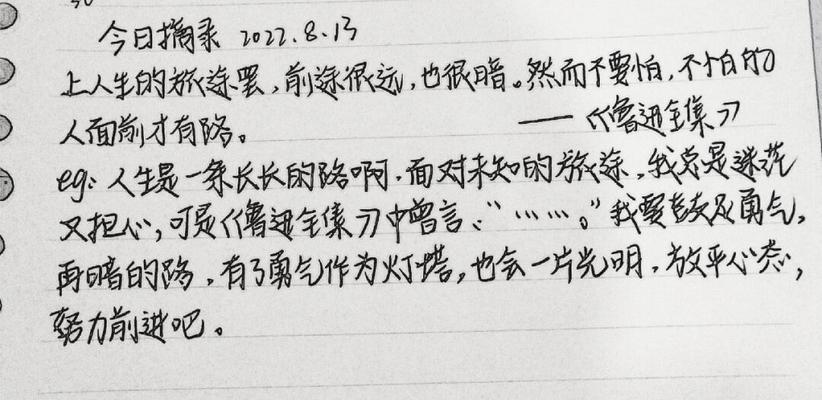 今日摘录 2022.8.13
上人生的旅途罢，前途很远，也很暗。然而不要怕，不怕的
人面前才有路。
——《鲁迅全集》
eg：人生是一条长长的路啊，面对未知的旅途，我总是迷茫
又担心，可是《鲁迅全集》中曾言、“……。”我要鼓足勇气，
再暗的路，有了勇气作为灯塔，也会一片光明，放平心态，
努力前进吧。